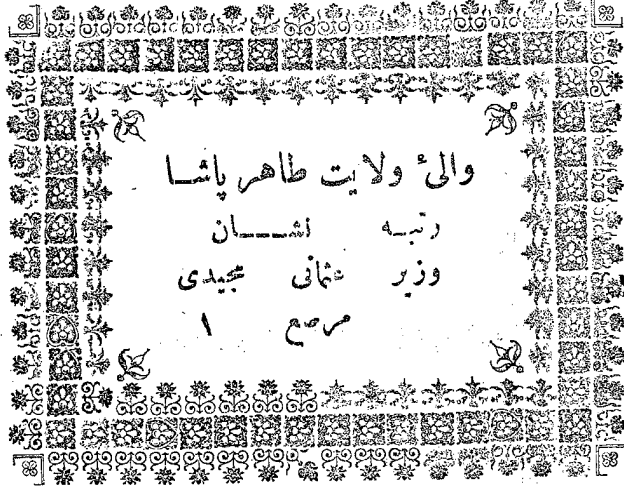 والئ ولايت طاهر پاشا
رتبه نشان
وزير عثمانى مجيدى
مرصع ١